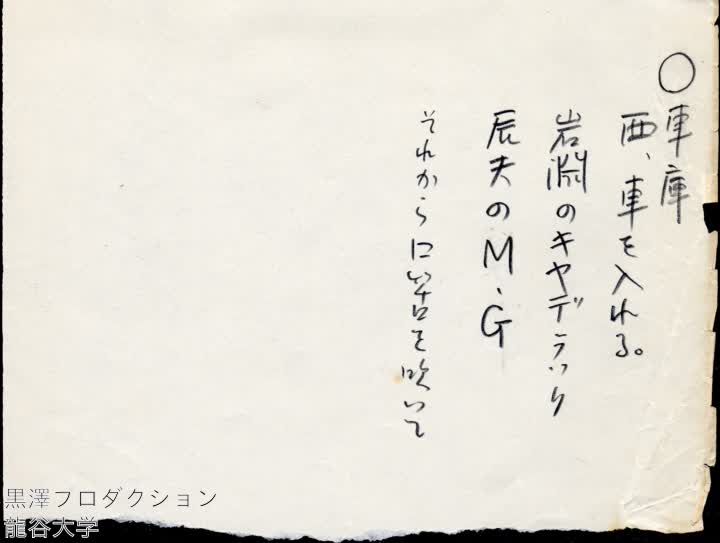 ○車庫
西、車を入れる。
岩淵のキャデラック
辰夫のM・G
それから口笛を吹いて
黒澤プロダクション
龍谷大学